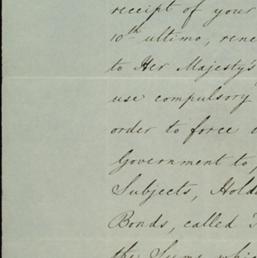 receipt of your
10th ultimo, rene
to Her Majesty's
use compulsory
order to force
Government to
Subjects, Hold
Bonds, called
the Sums, whic